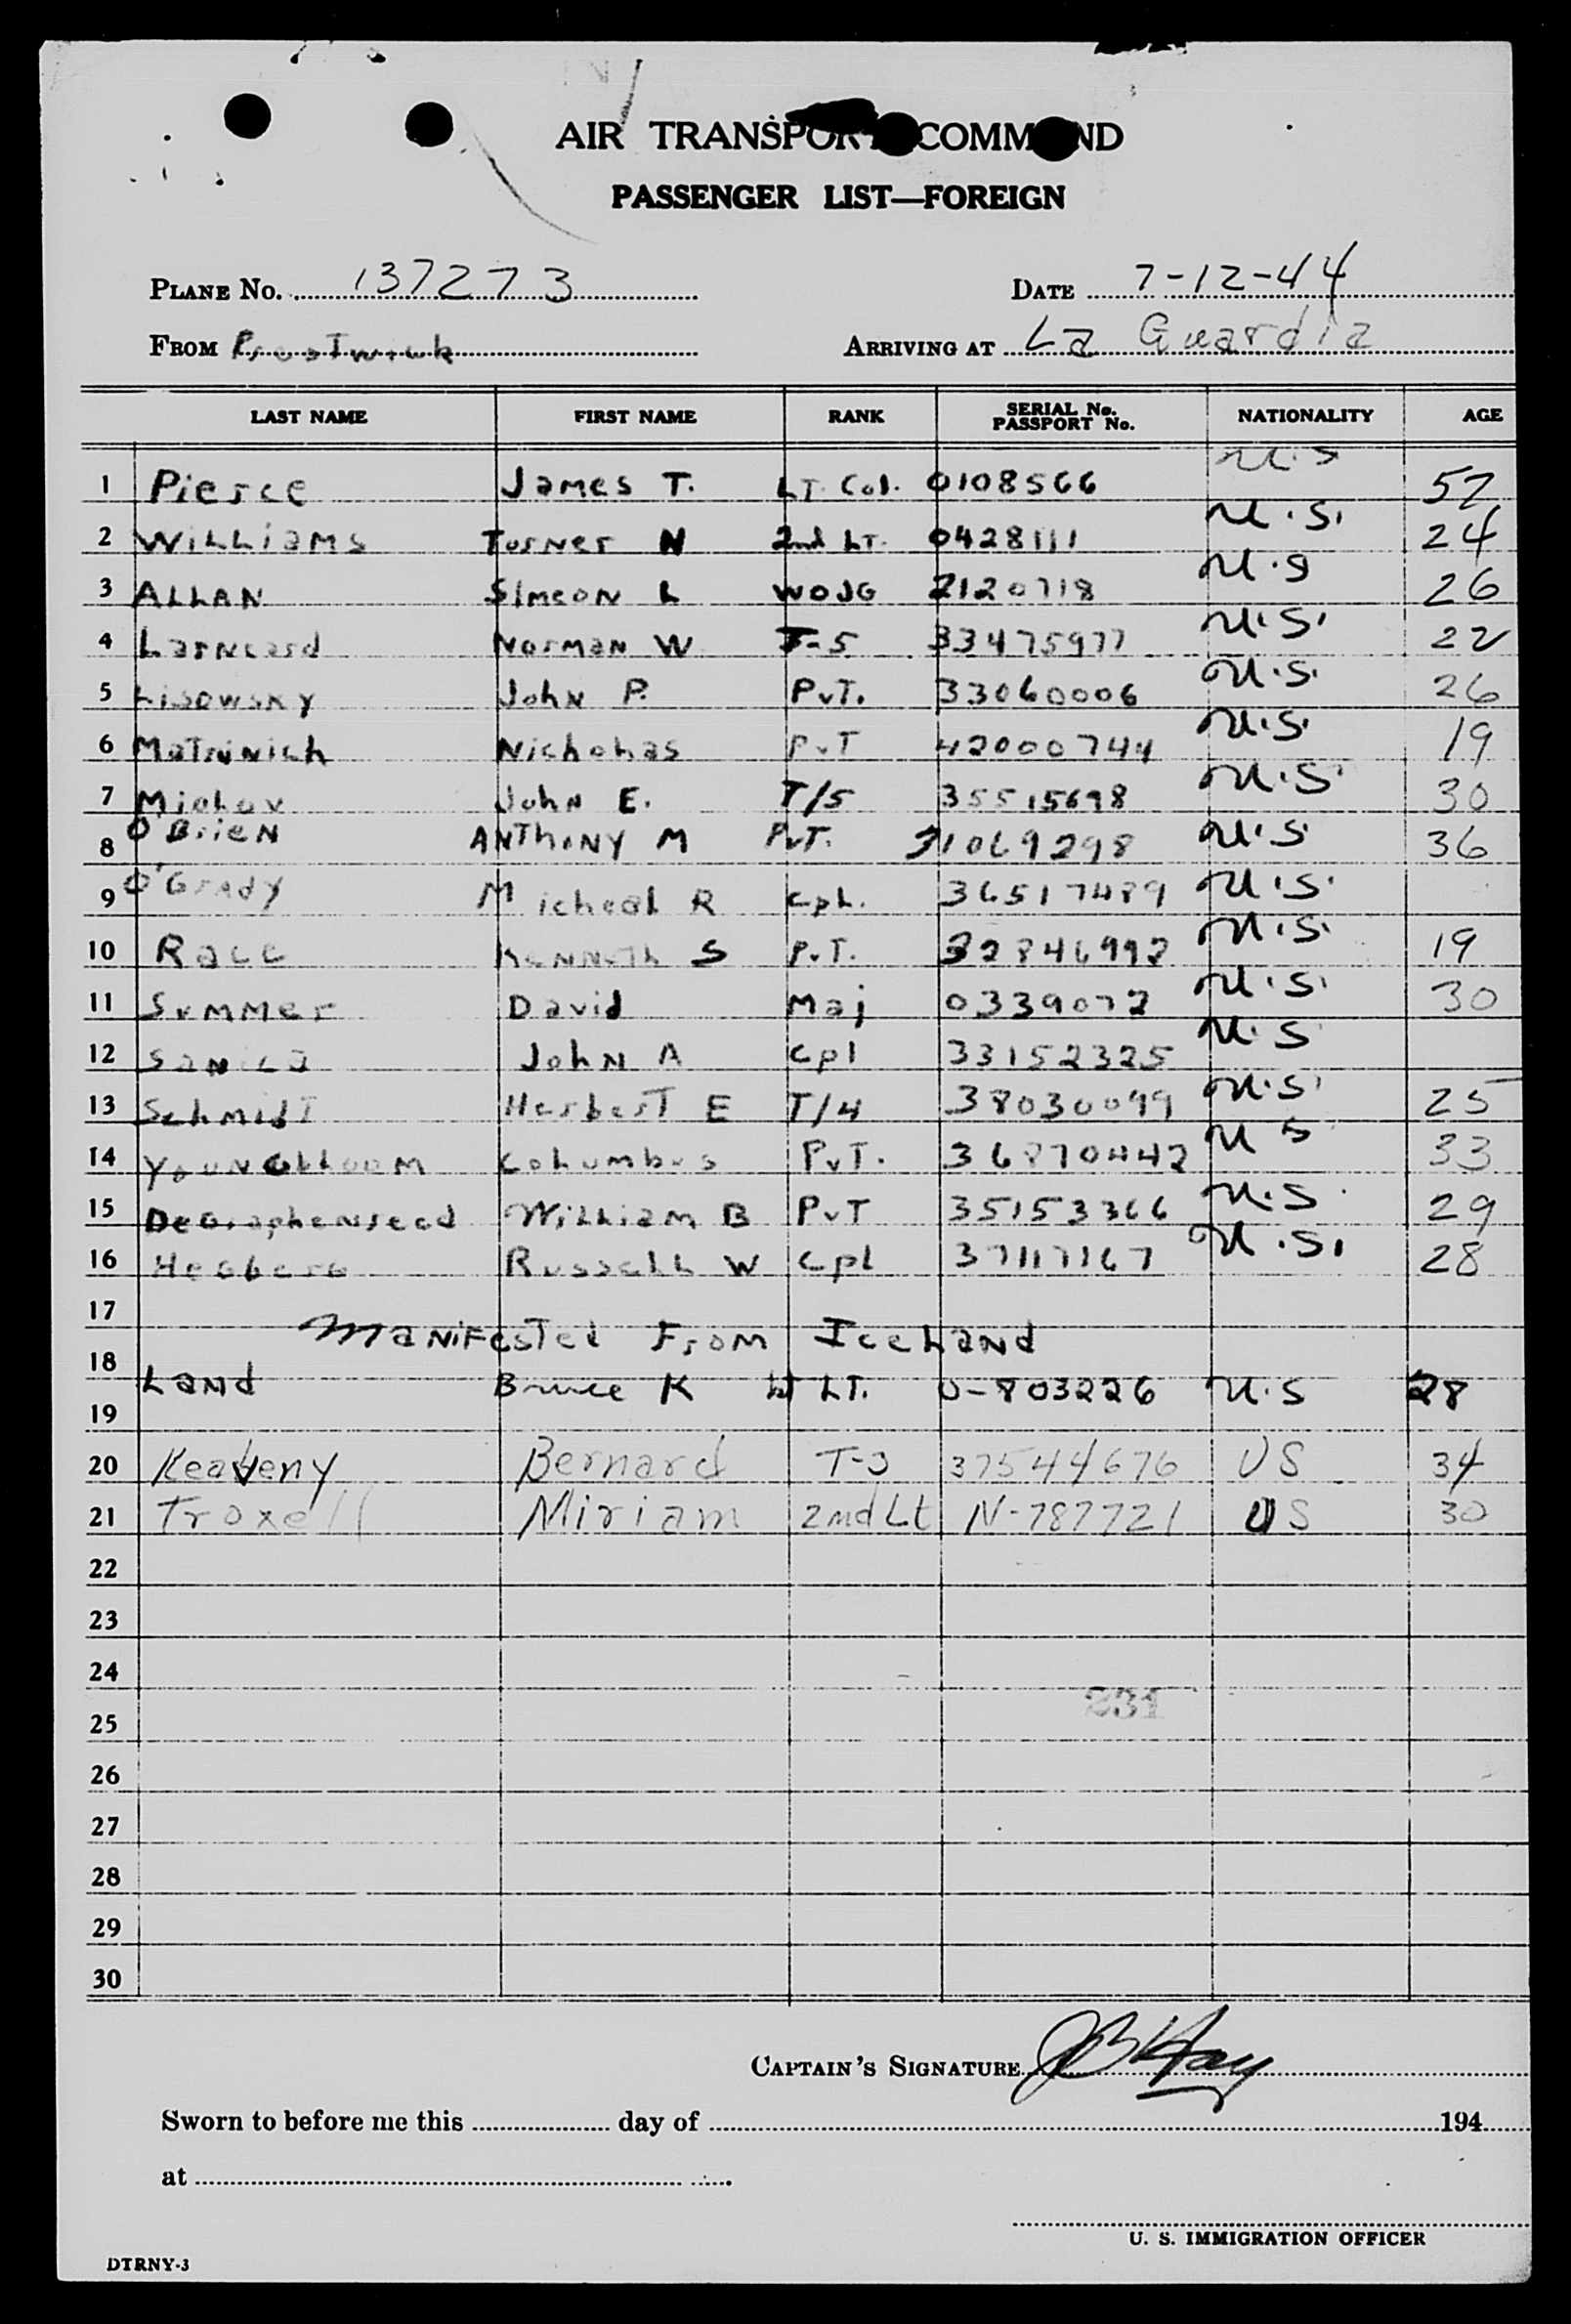 AIR TRANSPORT COMMAND
PASSENGER LIST—FOREIGN
PLANE No. 137273 DATE 7-12-44
FROM Prestwick ARRIVING AT La Guardia
LAST NAME FIRST NAME RANK SERIAL No. PASSPORT No. NATIONALITY AGE
1 Pierce James T. LT. Col. 0108566 U.S 52
2 Williams Turner N 2nd LT. 0428111 U.S. 24
3 ALLAN Simeon L WOJG 2120718 U.S 26
4 Larneard Norman W T-5 33475977 U.S. 22
5 Lisowsky John P. PvT. 33060006 U.S. 26
6 Nicholas PvT 42000744 U.S. 19
7 John E. T/5 35515698 U.S. 30
8 O'Brien ANThoNY M PvT. 31069298 U.S. 36
9 O'Grady Micheal R cpL. 36517489 U.S.
10 Race Kenneth S PvT. 32846992 U.S. 19
11 Summer David Maj 0339072 U.S. 30
12 John A cpl 33152325 U.S
13 Schmidt HerberT E T/4 38030099 U.S. 25
14 YoungbLoom Columbus PvT. 36870442 U S 33
15 DeGraphenreed William B PvT 35153366 U.S 29
16 Hegberg RusselL W cpl 37117167 U.S. 28
17
ManifesTed From IceLand
18
Land Bruce K LT. O-803226 U.S 28
19
20 Keaveny Bernard 37544676 US 34
21 Troxell Miriam 2nd Lt N-787721 US 30
22
23
24
231
25
26
27
28
29
30
CAPTAIN'S SIGNATURE
Sworn to before me this day of 194
at
U. S. IMMIGRATION OFFICER
DTRNY-3